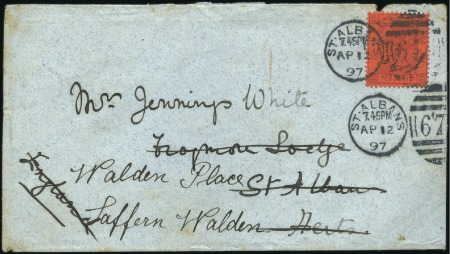 ST. ALBANS
7.45PM
AP 12
97
ST. ALBANS
7.45PM
AP 12
97
67
Mrs Jennings White
Frogmore Lodge
Walden Place St Albans
England
Saffern Walden Herts